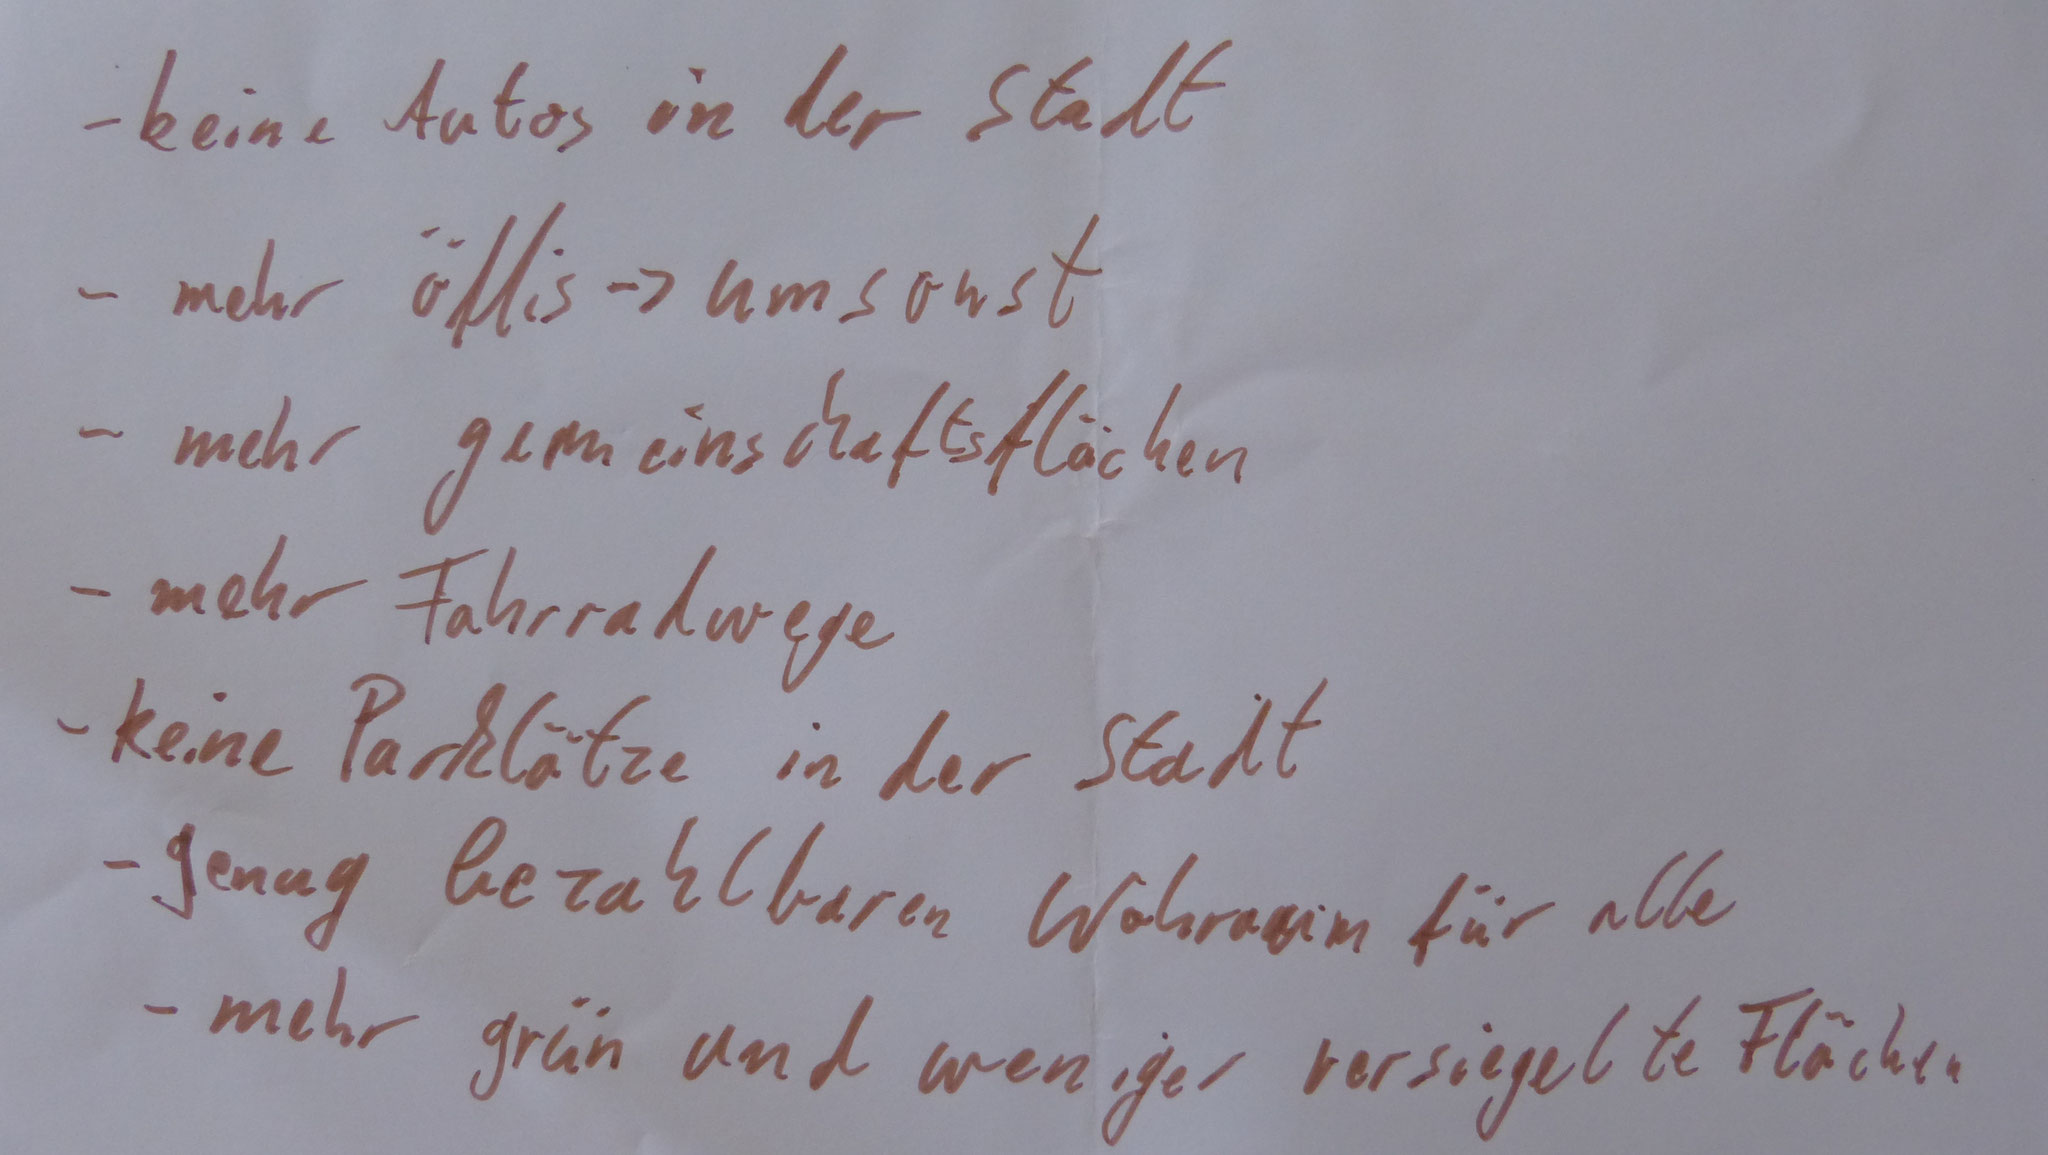 - keine Autos in der Stadt
- mehr öffis -> umsonst
- mehr gemeinschaftsflächen
- mehr Fahrradwege
- keine Parklätze in der Stadt
- genug bezahlbaren Wohraum für alle
- mehr grün und weniger versiegelte Flächen